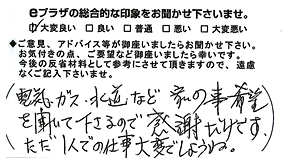 eプラザの総合的な印象をお聞かせ下さいませ。
□大変良い □良い □普通 □悪い □大変悪い
◆ご意見、アドバイス等が御座いましたらお聞かせ下さい。
お気付きの点、ご要望など御座いましたら幸いです。
今後の反省材料として参考にさせて頂きますので、遠慮
なくご記入下さいませ。
電気、ガス、水道など 家の事希望
を聞いて下さるので感謝だけです。
ただ1人での仕事大変でしょうね。